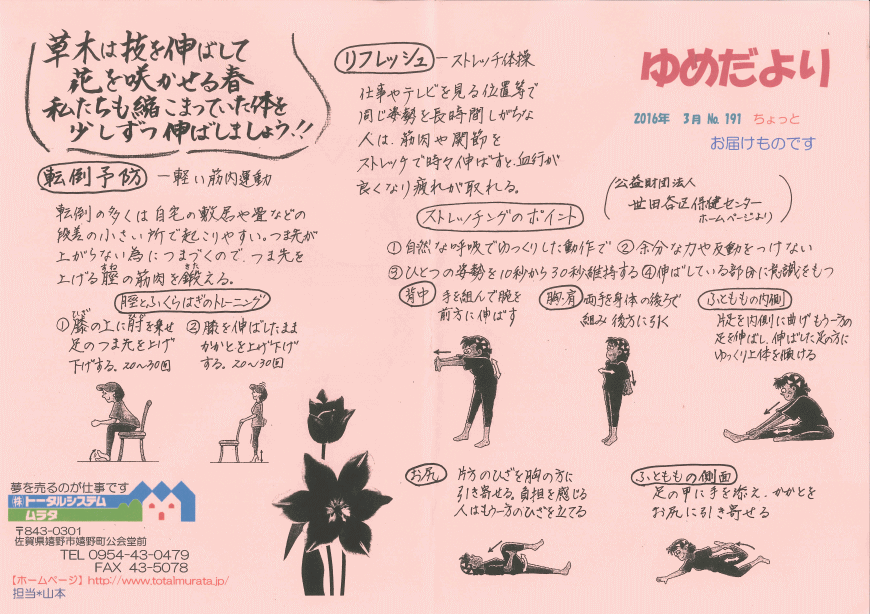 草木は技を伸ばして
花を咲かせる春
私たちも縮こまっていた体を
少しずつ伸ばしましょう!!
転倒予防 ー軽い筋肉運動
転倒の多くは自宅の敷居や畳などの
段差の小さい所で起こりやすい。つま先が
上がらない為につまづくので、つま先を
上げる脛の筋肉を鍛える。
脛とふくらはぎのトレーニング
①膝の上に肘を乗せ
足のつま先を上げ
下げする。20〜30回
②膝を伸ばしたまま
かかとを上げ下げ
する。20〜30回
夢を売るのが仕事です
㈱トータルシステム
ムラタ
〒843-0301
佐賀県嬉野市嬉野町公会堂前
TEL 0954-43-0479
FAX 43-5078
【ホームページ】http://www.totalmurata.jp/
担当*山本
リフレッシュ ーストレッチ体操
仕事やテレビを見る位置等で
同じ姿勢を長時間しがちな
人は、筋肉や関節を
ストレッチで時々伸ばすと、血行が
良くなり疲れが取れる。
ゆめだより
2016年 3月 No.191 ちょっと
お届けものです
公益財団法人
世田谷区保健センター
ホームページより
ストレッチングのポイント
①自然な呼吸でゆっくりした動作で ②余分な力や反動をつけない
③ひとつの姿勢を10秒から30秒維持する ④伸ばしている部分に意識をもつ
背中 手を組んで腕を
前方に伸ばす
胸・肩 両手を身体の後ろで
組み後方に引く
ふとももの内側
片足を内側に曲げもう一方の
足を伸ばし、伸ばした足の方に
ゆっくり上体を傾ける
お尻 片方のひざを胸の方に
引き寄せる。負担を感じる
人はもう一方のひざを立てる
ふとももの側面
足の甲に手を添え、かかとを
お尻に引き寄せる